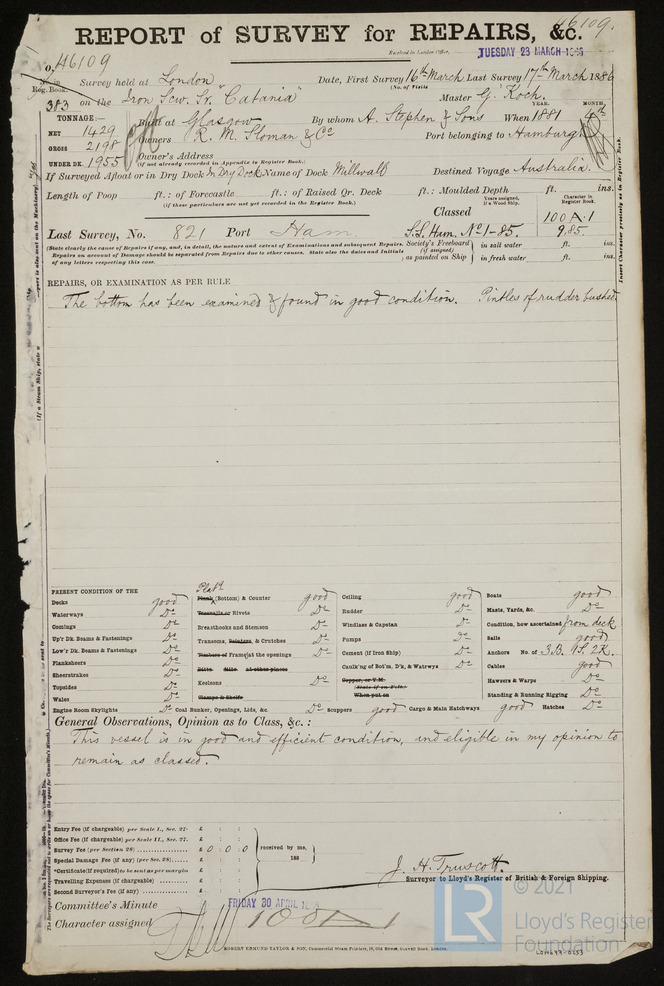 46109.
REPORT of SURVEY for REPAIRS, &c.
Received in London Office,
TUESDAY 23 MARCH 1886
o, 46109
No. in Reg. Book.
Survey held at London
Date, First Survey 16th March Last Survey 17th March 1886
(No. of Visits
313 on the Iron Scw. Sr. "Catania"
Master G. Koch.
TONNAGE:—
NET 1429
GROSS 2198
UNDER DK. 1955
Built at Glasgow
By whom A. Stephen & Sons When 1881 4th
YEAR. MONTH.
Owners R. M. Sloman & Co
Port belonging to Hamburg
Owner's Address
(if not already recorded in Appendix to Register Book.)
If Surveyed Afloat or in Dry Dock In Dry Dock Name of Dock Millwall
Destined Voyage Australia.
Length of Poop ft.: of Forecastle ft.: of Raised Qr. Deck ft.: Moulded Depth ft. ins.
(if these particulars are not yet recorded in the Register Book.)
Years assigned, if a Wood Ship.
Character in Register Book.
Classed
100 A.1
Last Survey, No. 821 Port Ham.
S.S. Ham. No1-85. 9,85.
(State clearly the causes of Repairs if any, and, in detail, the nature and extent of Examinations and subsequent Repairs.
Repairs on account of Damage should be separated from Repairs due to other causes. State also the dates and Initials
of any letters respecting this case.
Society's Freeboard (if assigned) as painted on Ship
in salt water ft. ins.
in fresh water ft. ins.
Insert Character precisely as in Register Book.
REPAIRS, OR EXAMINATION AS PER RULE
The bottom has been examined & found in good condition. Pintles of rudder bushed.
PRESENT CONDITION OF THE
Decks good
Waterways Do
Comings Do
Up'r Dk. Beams & Fastenings Do
Low'r Dk. Beams & Fastenings Do
Planksheers Do
Sheerstrakes Do
Topsides Do
Wales Do
Engine Room Skylights Do
Platg
Plank (Bottom) & Counter good
Treenails or Rivets Do
Breasthooks and Stemson Do
Transoms, Pointers, & Crutches Do
Timbers of Frame at the openings Do
Ditto Ditto at other places
Keelsons Do
Clamps & Shelfs
Coal Bunker, Openings, Lids, &c. Do
Ceiling good
Rudder Do
Windlass & Capstan Do
Pumps Do
Cement (if Iron Ship) Do
Caulk'ng of Bot'm, D'k, & Watrwys Do
Copper, or Y.M.
(State if on Felt.)
When put on
Scuppers good Cargo & Main Hatchways good Hatches Do
Boats good
Masts, Yards, &c. Do
Condition, how ascertained from deck
Sails good
Anchors No. of 3B. 1S. 2K.
Cables good
Hawsers & Warps Do
Standing & Running Rigging Do
General Observations, Opinion as to Class, &c.:
This vessel is in good and efficient condition, and eligible in my opinion to
remain as classed.
Entry Fee (if chargeable) per Scale I., Sec. 27. £ : :
Office Fee (if chargeable) per Scale II., Sec. 27. £ : :
Survey Fee (per Section 28) £ 0 : 0 : 0
Special Damage Fee (if any) (per Sec. 28) £ : :
*Certificate (if required) to be sent as per margin
Travelling Expenses (if chargeable) £ : :
Second Surveyor's Fee (if any) £ : :
received by me,
188
J. H. Truscott.
Surveyor to Lloyd's Register of British & Foreign Shipping.
Committee's Minute FRIDAY 30 APRIL
Character assigned 100 A 1
ROBERT EDMUND TAYLOR & SON, Commercial Steam Printers, 19, Old Street, Goswell Road, London.
LR
© 2021
Lloyd's Register
Foundation
LON699-0253